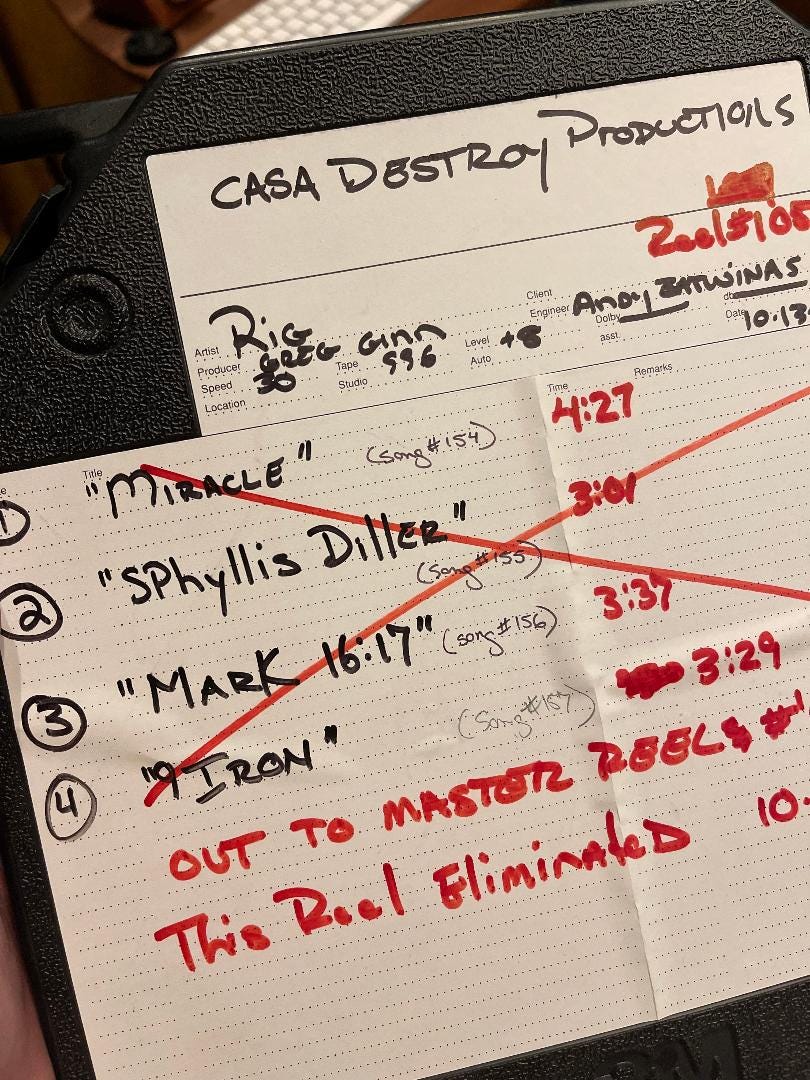 CASA DESTROY PRODUCTIONS
Reel#105
Client
Artist Rig Engineer Andy BATWINAS
Producer GREG GINN Level +8 Dolby db
Speed 30 Tape 996 Auto asst. Date 10.13
Location Studio
Title Time Remarks
1 "MIRACLE" (song #154) 4:27
2 "SPhyllis DilleR" (song #155) 3:01
3 "MARK 16:17" (song #156) 3:37
4 "9 IRON" (song #157) 3:29
OUT TO MASTER REELS #1
This Reel EliminateD 10.